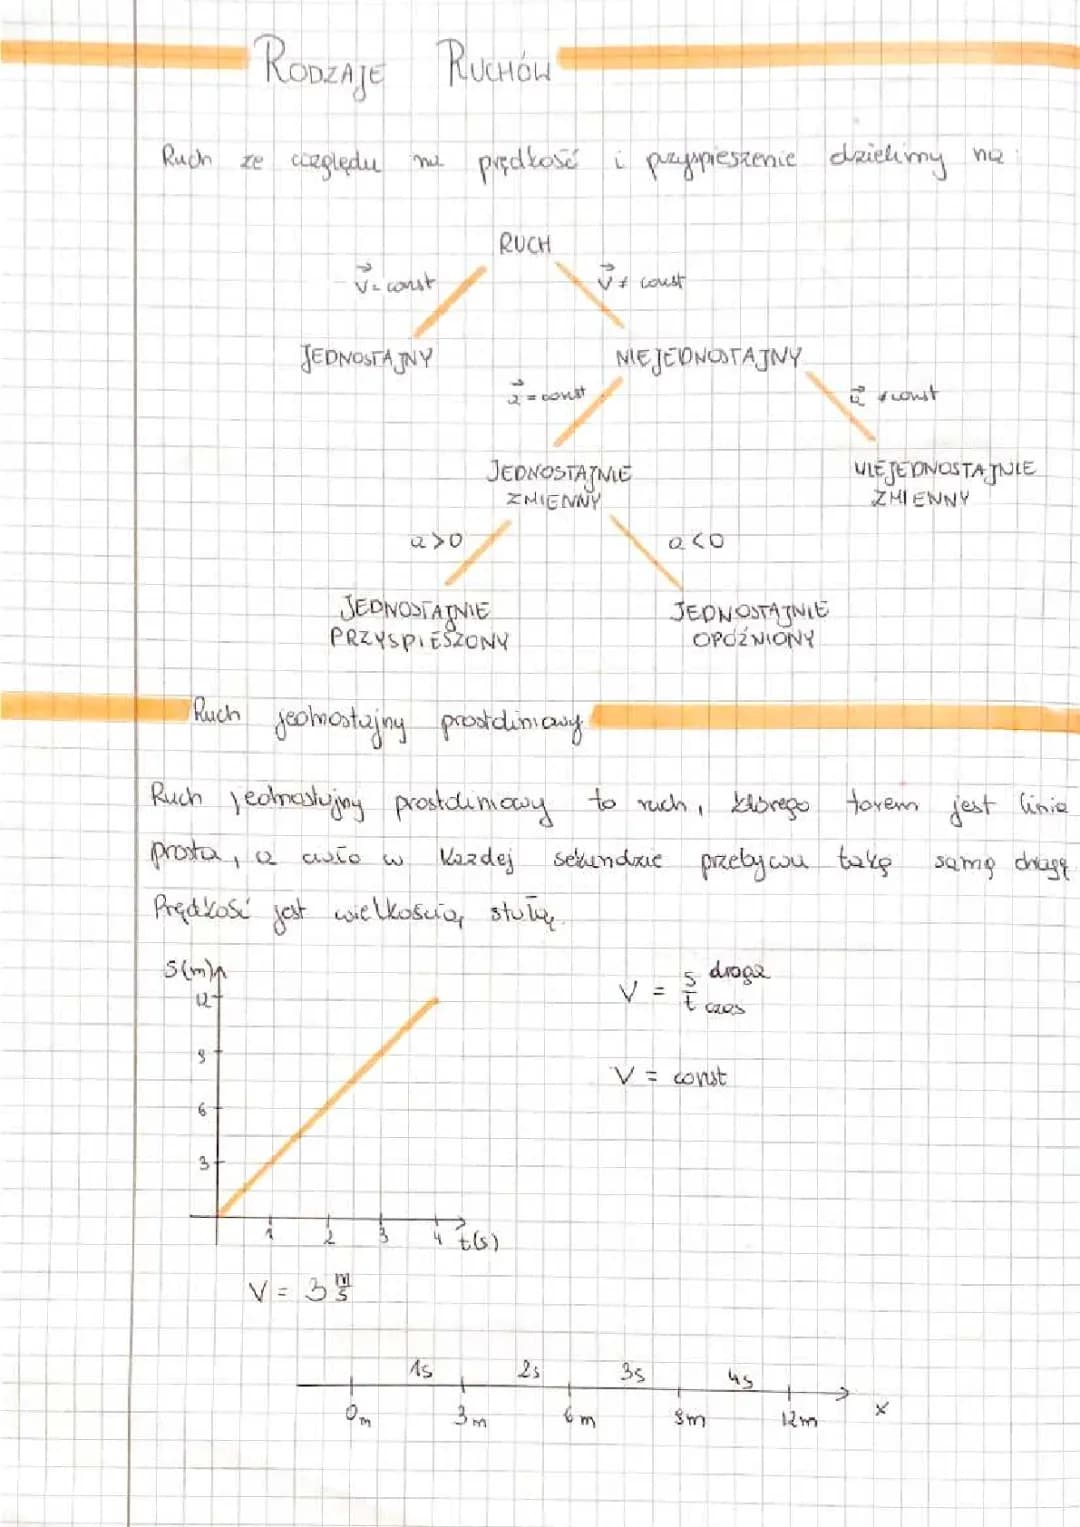 RODZAJE RUCHÓW
Ruch ze względu na prędkość i przyspieszenie dzielimy na:
RUCH
v⃗ = const v⃗ ≠ const
JEDNOSTAJNY NIEJEDNOSTAJNY
a⃗ = const a⃗ ≠ const
JEDNOSTAJNIE ZMIENNY
NIEJEDNOSTAJNIE ZMIENNY
a>0 a<0
JEDNOSTAJNIE PRZYSPIESZONY
JEDNOSTAJNIE OPÓŹNIONY
Ruch jednostajny prostoliniowy
Ruch jednostajny prostoliniowy to ruch, którego torem jest linia
prosta, a ciało w każdej sekundzie przebywa taką samą drogę
Prędkość jest wielkością stałą.
S(m)
12
9
6
3
1 2 3 4 t(s)
V = s/t droga czas
V = const
V = 3 m/s
1s 2s 3s 4s
0m 3m 6m 9m 12m x